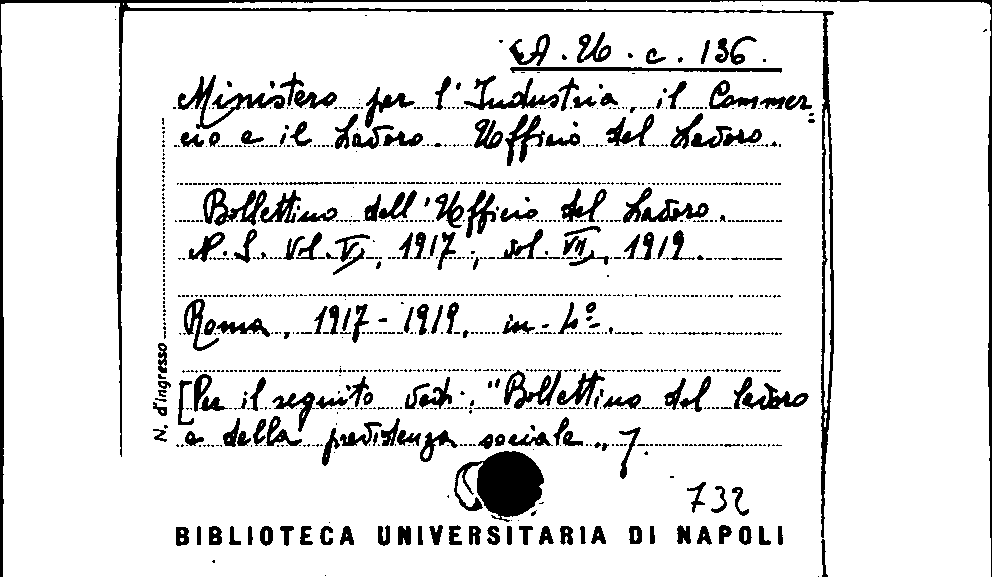 A. Ub. c. 136.
Ministero per l'Industria, il Commer=
cio e il Lavoro. Ufficio del Lavoro.
Bollettino dell'Ufficio del Lavoro.
N. S. Vol. V, 1917; vol. VII, 1919.
Roma, 1917-1919, in-4º.
[Per il seguito ved.: "Bollettino del lavoro
e della previdenza sociale„].
N. d'ingresso
732
BIBLIOTECA UNIVERSITARIA DI NAPOLI